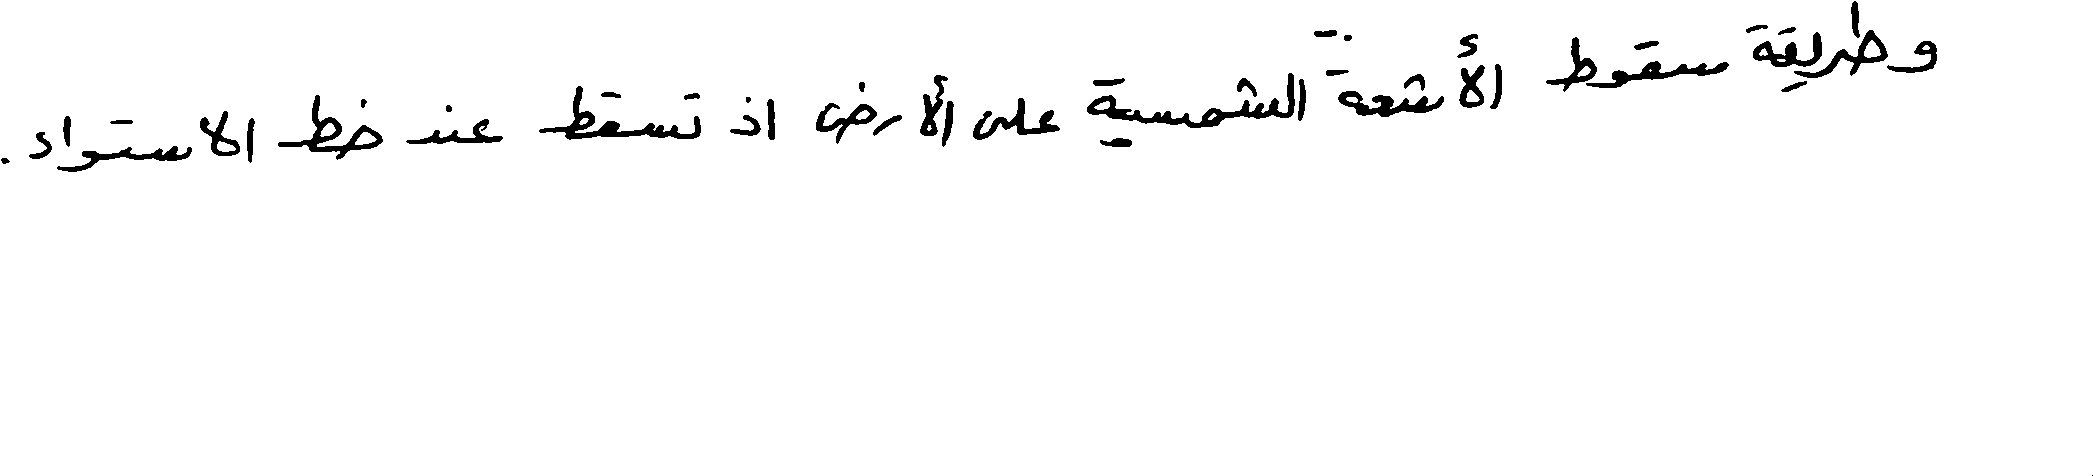 وطريقة سقوط الأشعة الشمسية على الأرض اذ تسقط عند خط الاستواء .